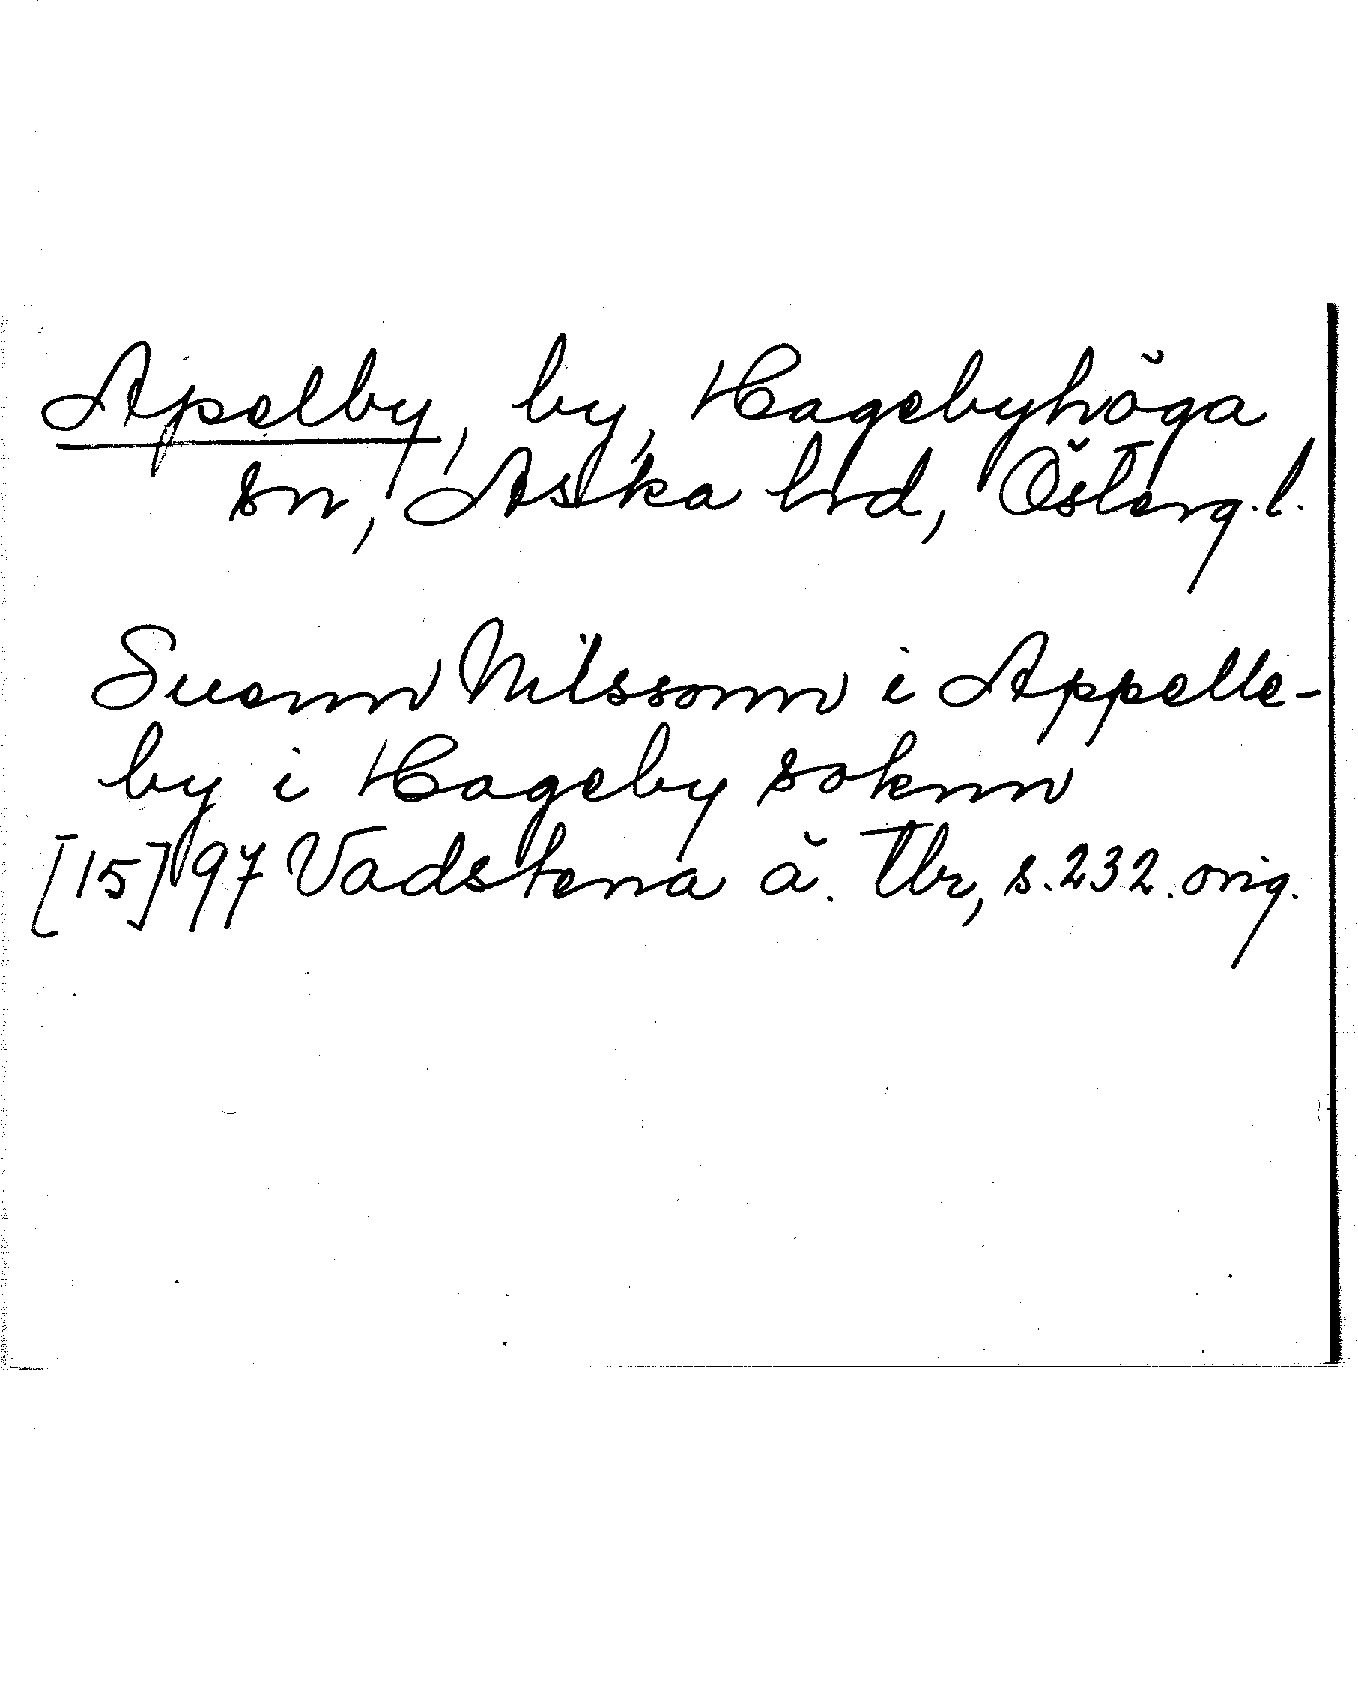 Apelby, by, Hagebyhöga
sn, Aska hd, Österg.l.
Suenn Nilssonn i Appelle-
by i Hageby soknn
[15]97 Vadstena ä. Tbr, s.232. orig.